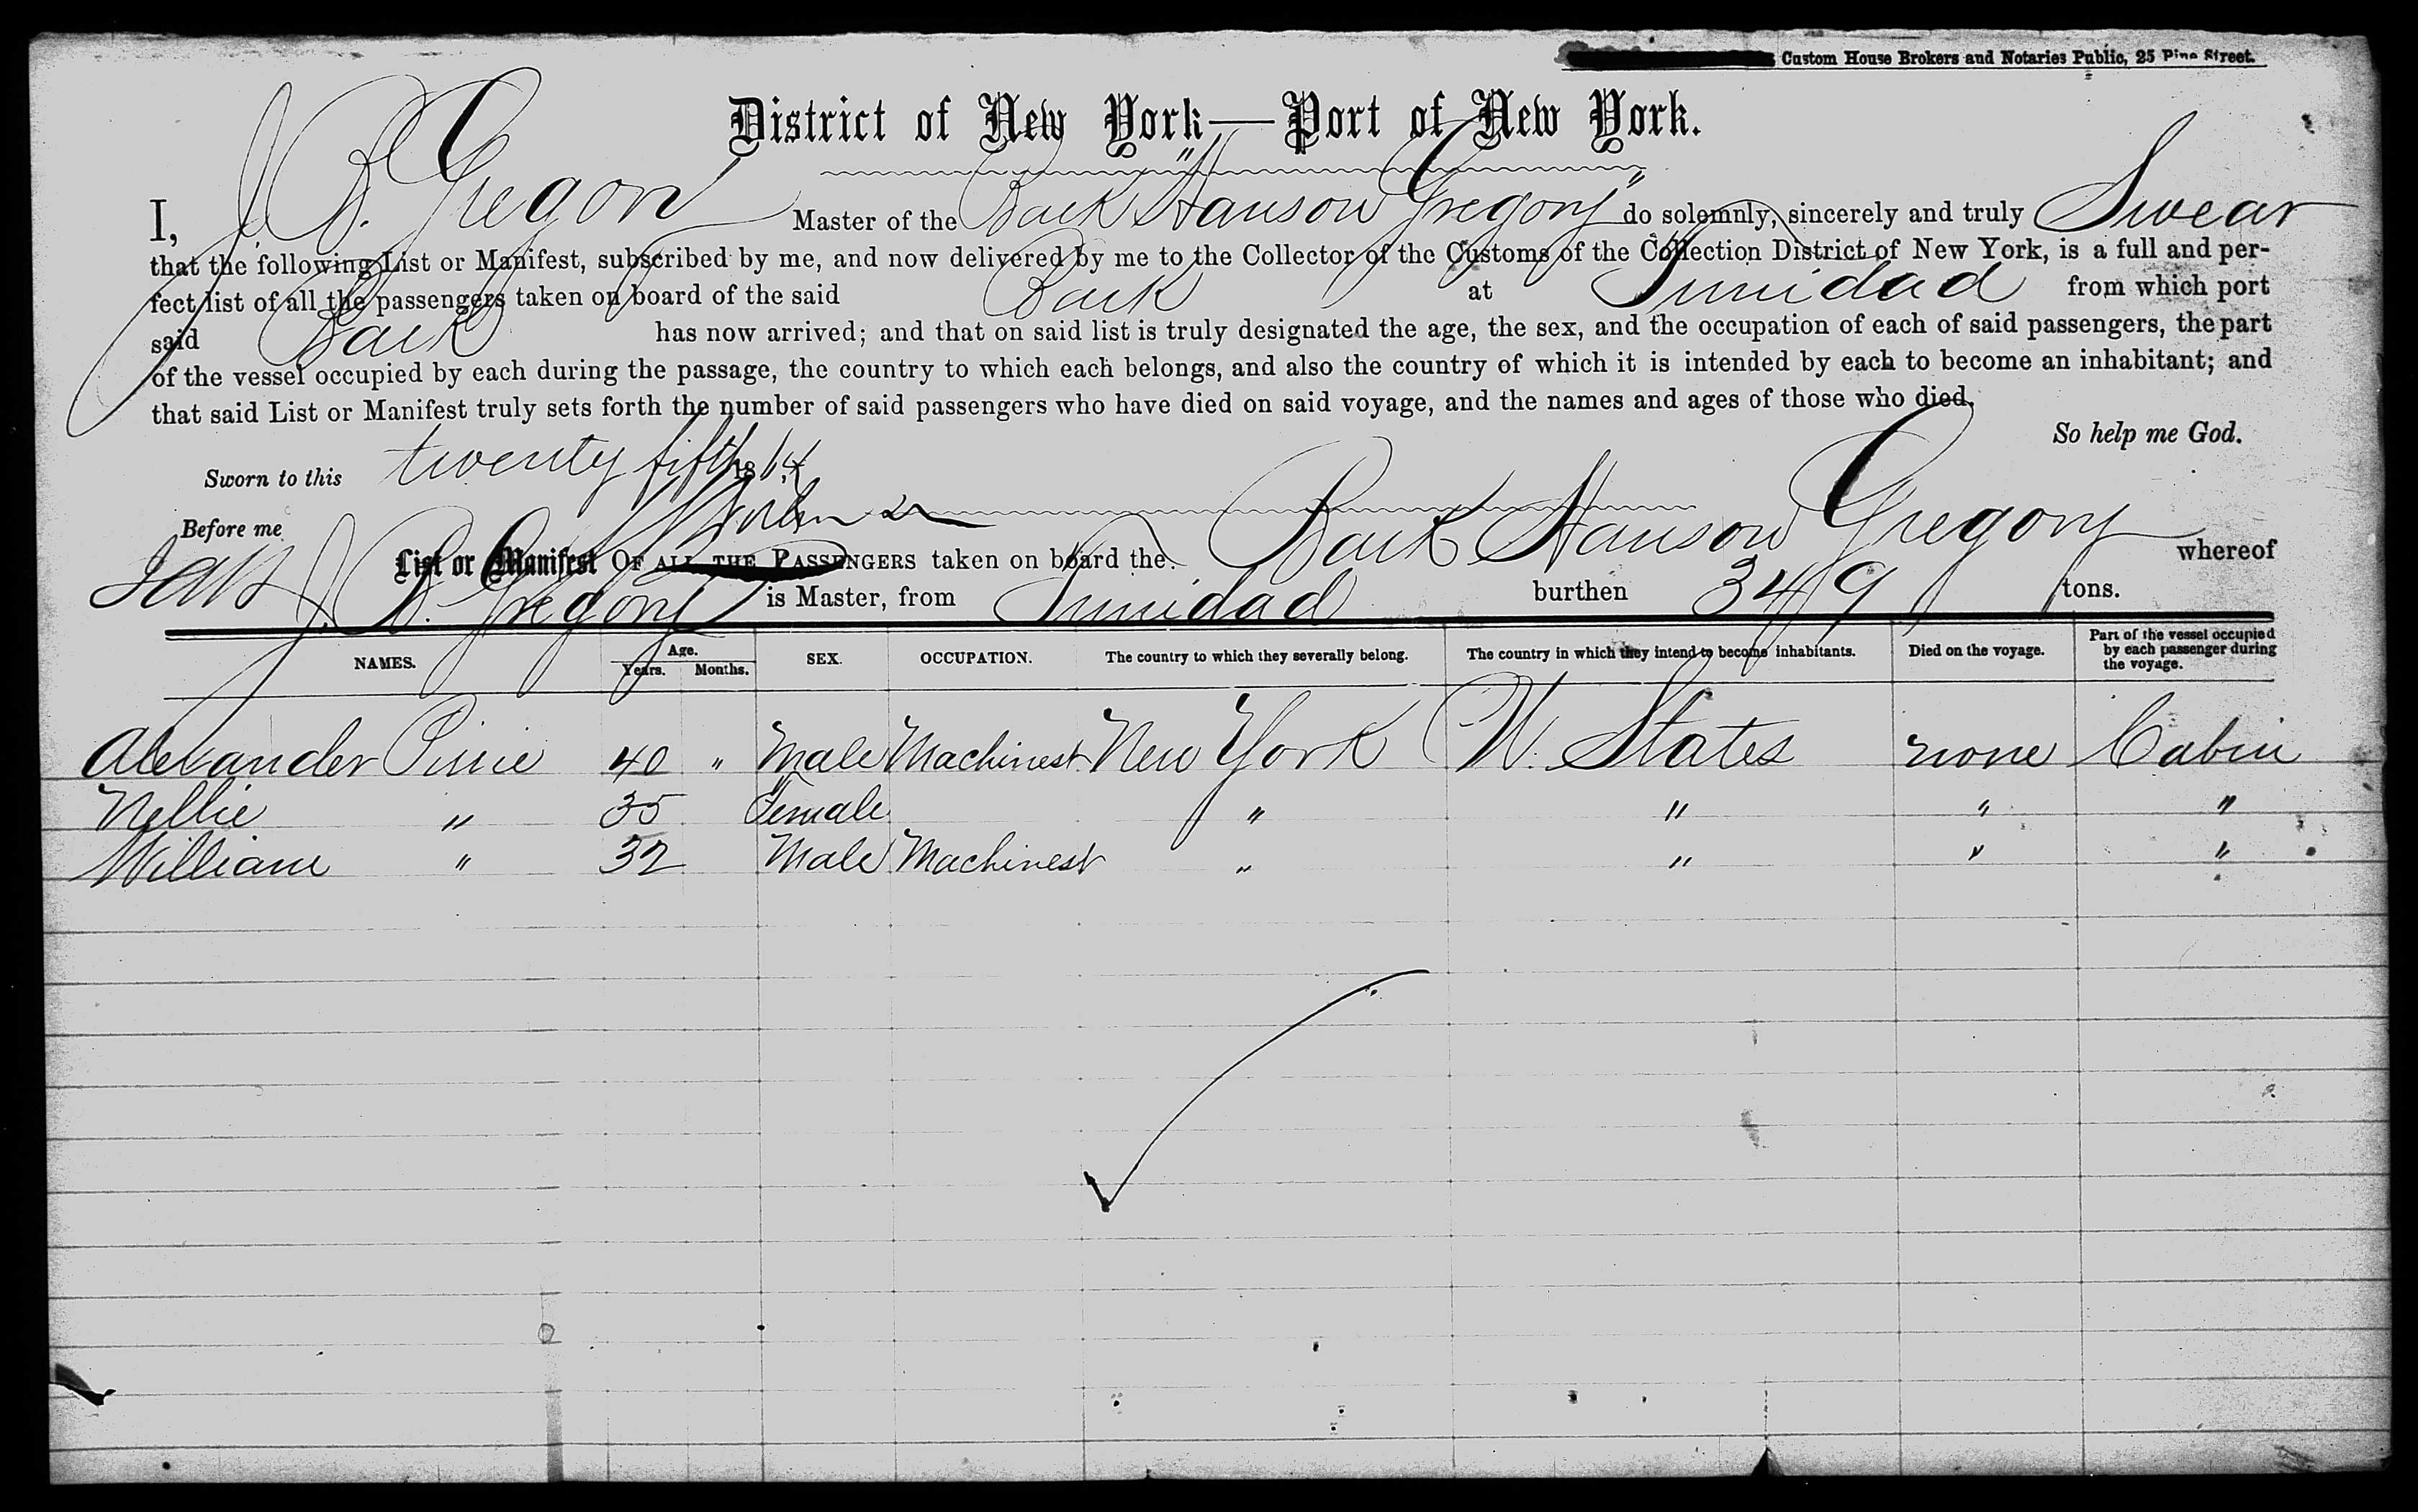 Custom House Brokers and Notaries Public, 25 Pine Street.
District of New York—Port of New York.
I, J. B. Gregory Master of the Bark "Hanson Gregory" do solemnly, sincerely and truly Swear
that the following List or Manifest, subscribed by me, and now delivered by me to the Collector of the Customs of the Collection District of New York, is a full and per-
fect list of all the passengers taken on board of the said Bark at Trinidad from which port
said Bark has now arrived; and that on said list is truly designated the age, the sex, and the occupation of each of said passengers, the part
of the vessel occupied by each during the passage, the country to which each belongs, and also the country of which it is intended by each to become an inhabitant; and
that said List or Manifest truly sets forth the number of said passengers who have died on said voyage, and the names and ages of those who died.
So help me God.
Sworn to this twenty fifth 18
Before me
List or Manifest OF ALL THE PASSENGERS taken on board the Bark Hanson Gregory whereof
J. B. Gregory is Master, from Trinidad burthen 349 tons.
NAMES. Age. Years. Months. SEX. OCCUPATION. The country to which they severally belong. The country in which they intend to become inhabitants. Died on the voyage. Part of the vessel occupied by each passenger during the voyage.
Alexander Pirie 40 " Male Machinest New York U. States none Cabin
Nellie " 35 Female " " " "
William " 32 Male Machinest " " " "